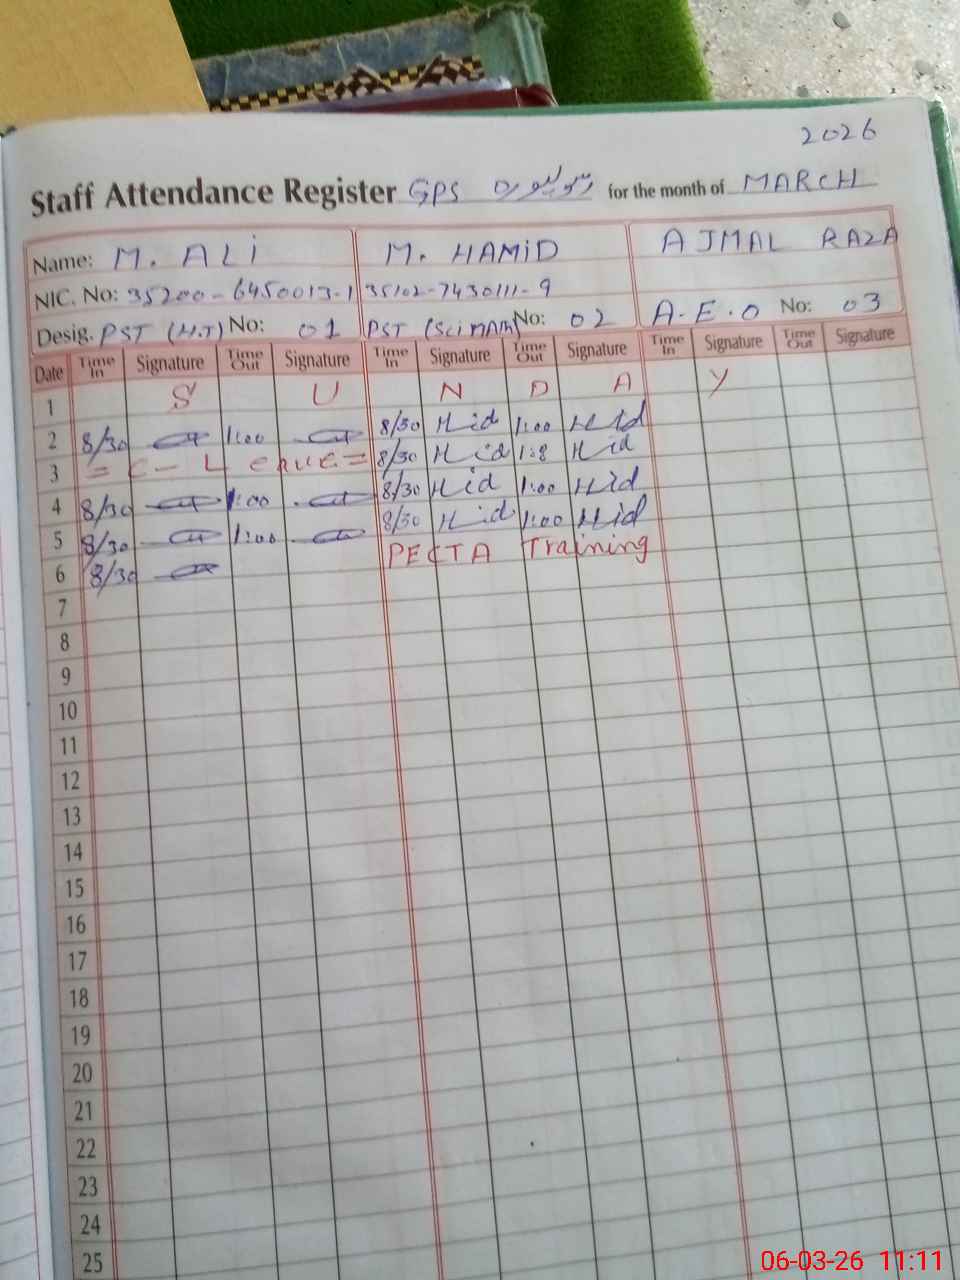 2026
Staff Attendance Register GPS for the month of MARCH
Name: M. ALi M. HAMiD AJMAL RAZA
NIC. No: 35200-6450013-1 35102-7430111-9
Desig. PST (H.T) No: 01 PST (Sci MAth) No: 02 A.E.O No: 03
Date Time In Signature Time Out Signature Time In Signature Time Out Signature Time In Signature Time Out Signature
1 S U N D A Y
2 8/30 1:00 8/30 Hid 1:00 Hid
3 = C-Leave = 8/30 Hid 1:8 Hid
4 8/30 1:00 8/30 Hid 1:00 Hid
5 8/30 1:00 8/30 Hid 1:00 Hid
6 8/30 PECTA Training
7
8
9
10
11
12
13
14
15
16
17
18
19
20
21
22
23
24
25
06-03-26 11:11